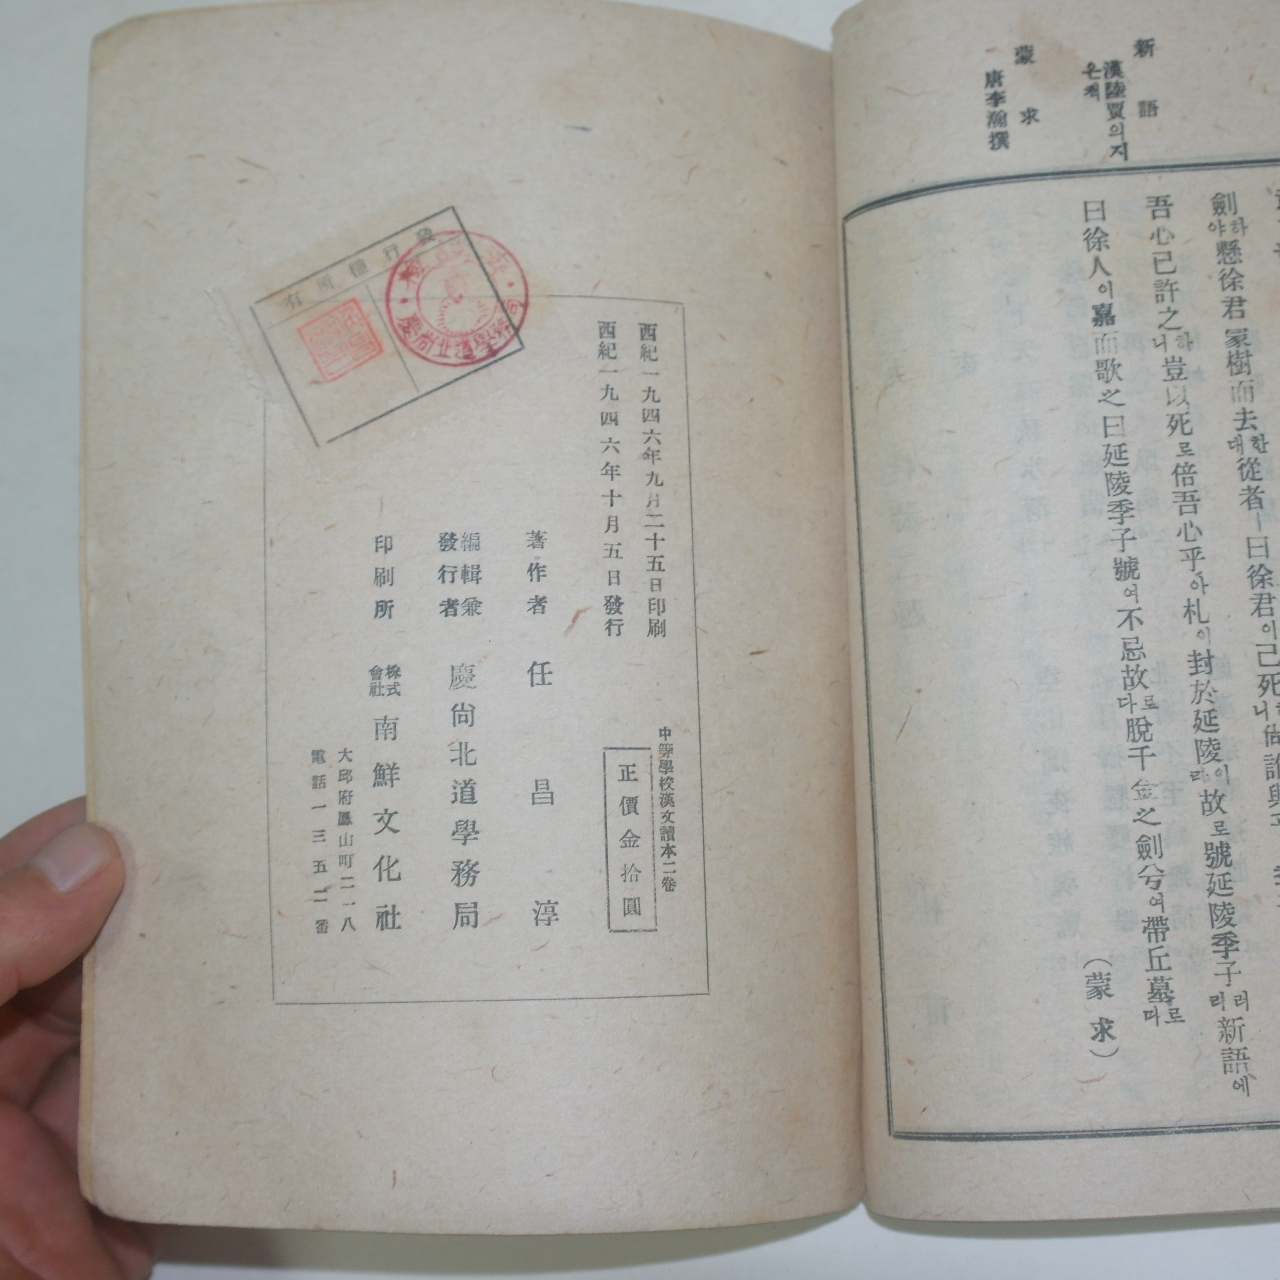 新語
漢陸賈의지
은책
蒙求
唐李瀚撰
劍하야懸徐君冢樹而去한대從者ㅣ曰徐君이已死하니尙誰與
吾心已許之하니豈以死로倍吾心乎아札이封於延陵이라故로號延陵季子러라新語에
曰徐人이嘉而歌之曰延陵季子號여不忘故로다脫千金之劍兮여帶丘墓로다
(蒙求)
發行權所有
慶尙北道學務局
西紀一九四六年九月二十五日印刷
西紀一九四六年十月五日發行
中等學校漢文讀本二卷
正價金拾圓
著作者 任昌淳
編輯兼發行者 慶尙北道學務局
印刷所 株式會社 南鮮文化社
大邱府鳳山町二一八
電話一三五二番